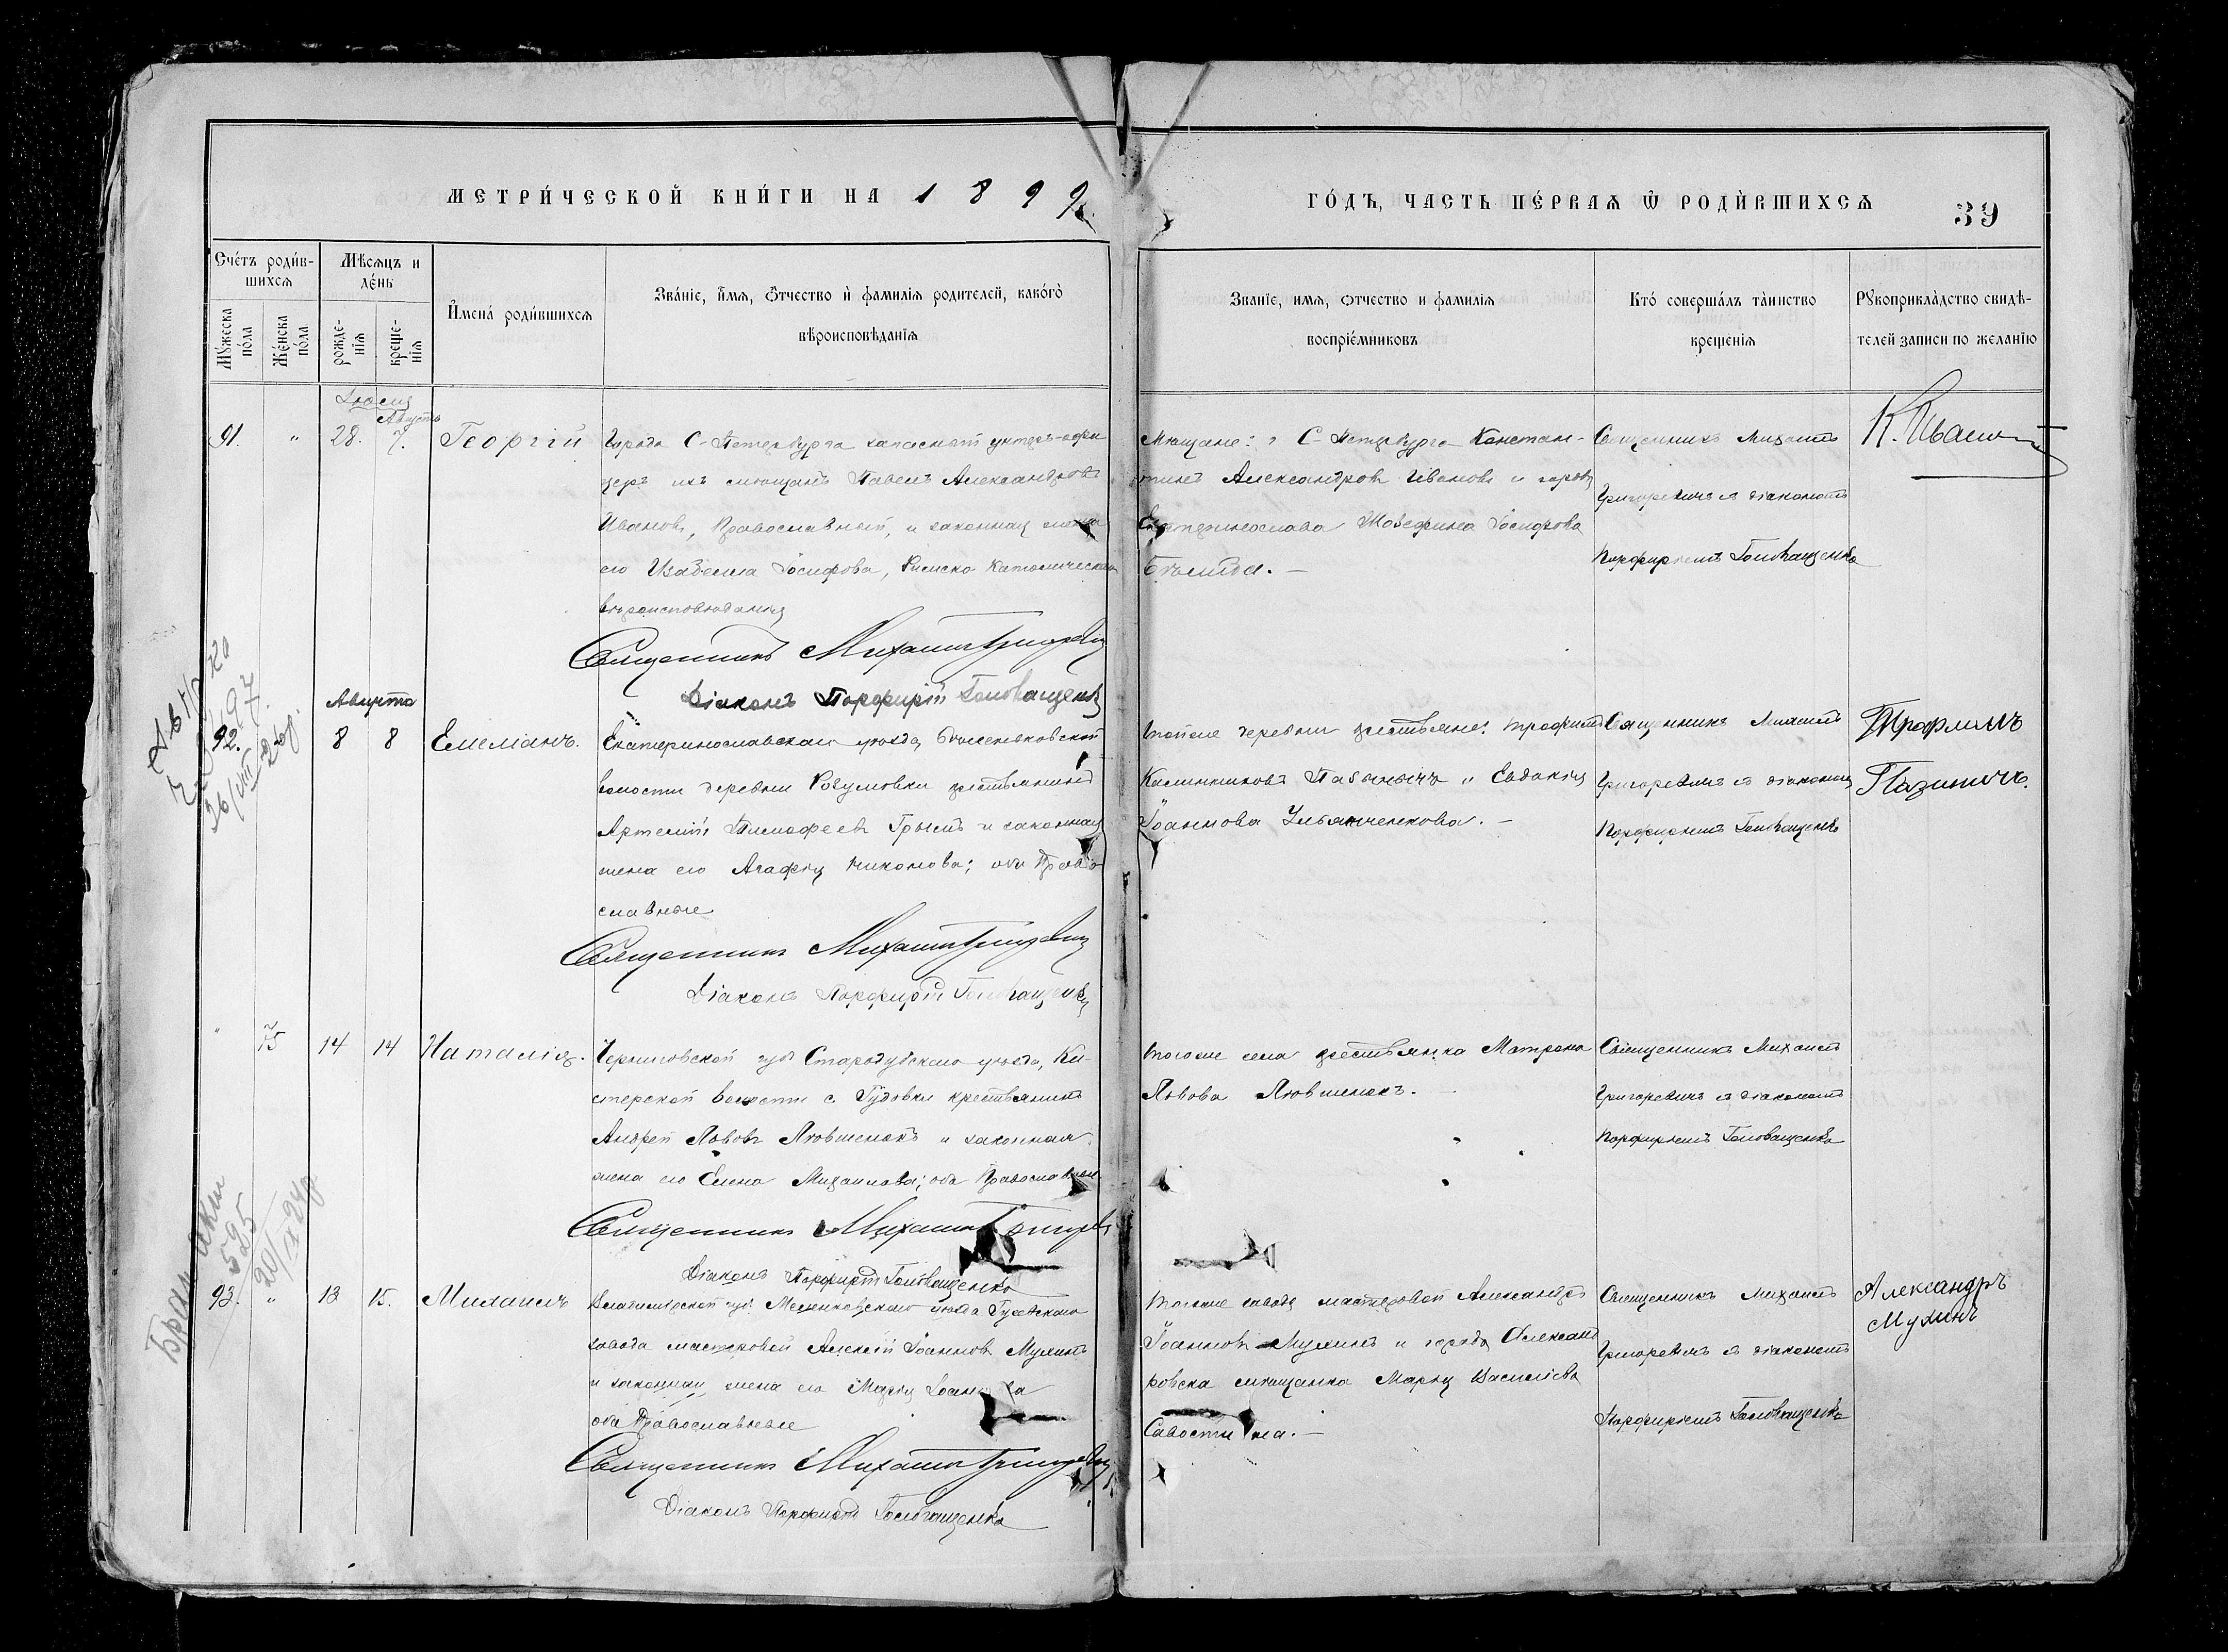 МЕТРИ́ЧЕСКОЙ КНИ́ГИ НА 1899
ГО́ДЪ, ЧАСТЬ ПЕ́РВАЯ Ѡ РОДИ́ВШИХСЯ
39
Сче́тъ роди́в-
шихся
Мѣсяцъ и
де́нь
Му́жеска по́ла
Же́нска по́ла
рожде-
нія
креще-
нія
Имена́ роди́вшихся
Зва́ніе, и́мя, ѻ҆́тчество и фамилія родителей, како́го
вѣроисповѣданія
Званіе, имя, ѻтчество и фамилія
воспріе́мниковъ
Кто́ соверша́лъ та́инство
крещенія
Рукоприкла́дство свидѣ-
телей записи по желанію
Іюля
Августъ
91. " 28. 7. Георгій
Города С-Петербурга запасной унтеръ-офи
церъ изъ мѣщанъ Павелъ Александровъ
Ивановъ, Православный, и законная жена
его Изабелла Іосифова, Римско Католическаго
вѣроисповѣданія
Священникъ Михаилъ Григоревичъ
Діаконъ Порфирій Головащенко
Мѣщане: г С-Петербурга Констан-
тинъ Александровъ Ивановъ и города
Екатеринослава Жозефина Іосифова
Священникъ Михаилъ
Григоревичъ съ діакономъ
Порфиріемъ Головащенко
К. Иванов
Августа
92. 8 8 Емеліанъ.
Екатеринославскаго уѣзда,
волости деревни Розумовки крестьянинъ
Артемій Тимофеевъ и законная
жена его Агафія Никонова; оба Право
славные
Священникъ Михаилъ Григоревичъ
Діаконъ Порфирій Головащенко
Тойже деревни крестьяне: Трофимъ
Калинниковъ и Евдокія
Іоаннова Ульянченкова.
Священникъ Михаилъ
Григоревичъ съ діакономъ
Порфиріемъ Головащенко
Трофимъ
" 75 14 14 Наталія.
Черниговской губ Стародубскаго уѣзда,
волости с. Гудовки крестьянинъ
Андрей Львовъ и законная
жена его Елена Михаилова; оба Православные
Священникъ Михаилъ Григоревичъ
Діаконъ Порфирій Головащенко
Тогоже села крестьянка Матрона
Львова
Священникъ Михаилъ
Григоревичъ съ діакономъ
Порфиріемъ Головащенко
Брак
525
93. " 13 15. Михаилъ
Владимірской губ. Меленковскаго уѣзда Гусевскаго
завода мастеровой Алексій Іоанновъ Мухинъ
и законная жена его Марія
оба Православные
Священникъ Михаилъ Григоревичъ
Діаконъ Порфирій Головащенко
Тогоже завода мастеровой Александръ
Іоанновъ Мухинъ и города Александ
ровска мѣщанка Марія Василіева
Священникъ Михаилъ
Григоревичъ съ діакономъ
Порфиріемъ Головащенко
Александръ
Мухинъ